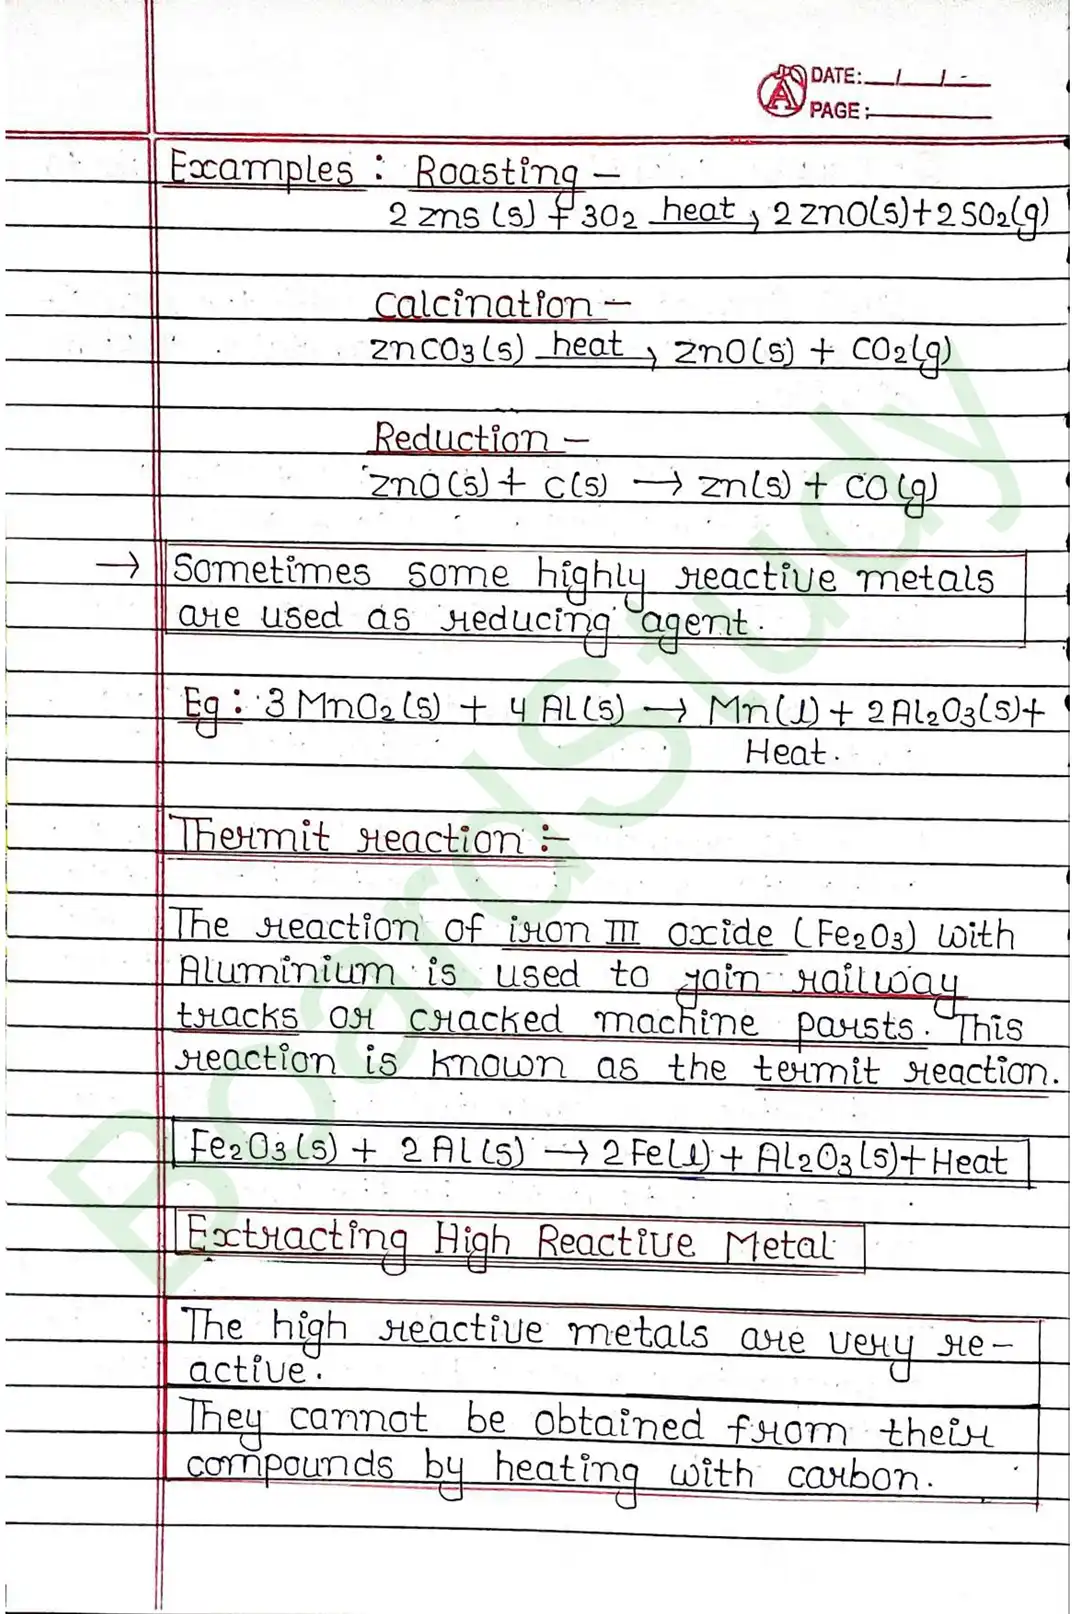 DATE: / / -
PAGE:
Examples : Roasting –
2 zns (s) + 3O2 heat → 2 znO(s)+2SO2(g)
Calcination –
znCO3(s) heat → znO(s) + CO2(g)
Reduction –
znO(s) + C(s) → zn(s) + CO(g)
→ Sometimes some highly reactive metals
are used as reducing agent.
Eg : 3 MnO2(s) + 4 Al(s) → Mn(l) + 2Al2O3(s)+
Heat.
Thermit reaction :-
The reaction of iron III oxide (Fe2O3) with
Aluminium is used to join railway
tracks or cracked machine parsts. This
reaction is known as the termit reaction.
Fe2O3(s) + 2 Al(s) → 2Fe(l) + Al2O3(s)+Heat
Extracting High Reactive Metal
The high reactive metals are very re-
active.
They cannot be obtained from their
compounds by heating with carbon.
BoardStudy